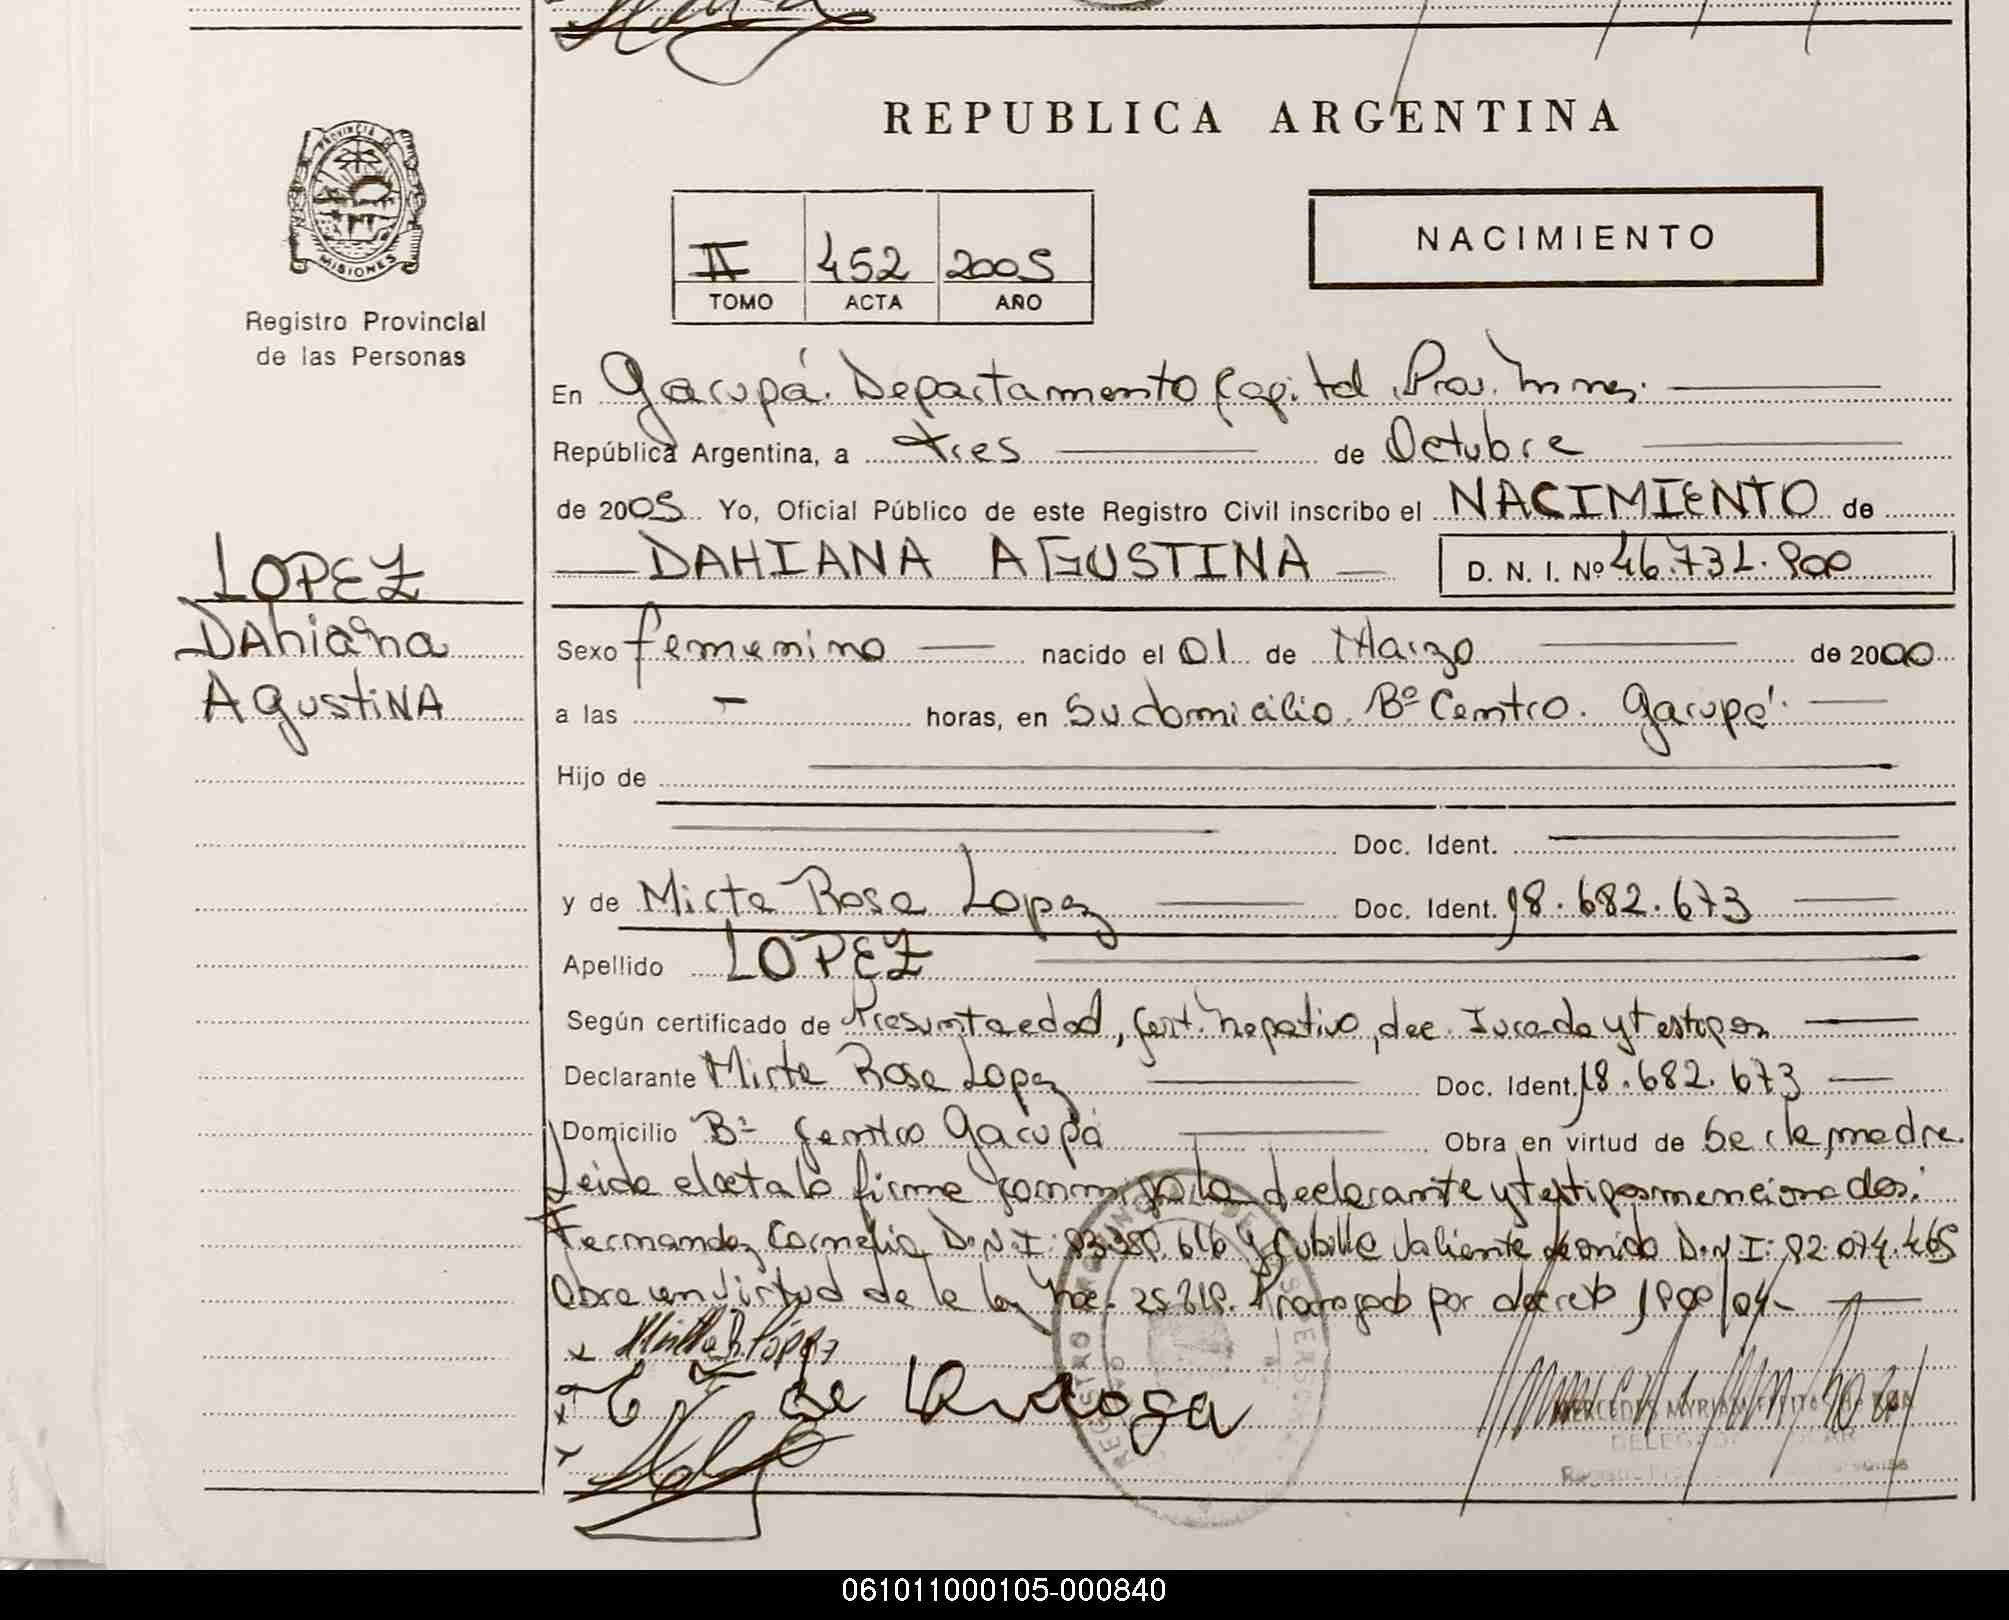 REPUBLICA ARGENTINA
PROVINCIA DE
MISIONES
Registro Provincial
de las Personas
II 452 2005
TOMO ACTA AÑO
NACIMIENTO
En Garupá. Departamento Capital. Prov. Mnes.
República Argentina, a tres de Octubre
de 2005 Yo, Oficial Público de este Registro Civil inscribo el NACIMIENTO de
DAHIANA AGUSTINA D. N. I. Nº 46.731.900
LOPEZ
DAhiana
AgustiNA
Sexo femenino nacido el 01 de Marzo de 2000
a las - horas, en Su domicilio. Bº Centro. Garupá.
Hijo de
Doc. Ident.
y de Mirta Rosa Lopez Doc. Ident. 18.682.673
Apellido LOPEZ
Según certificado de Presunta edad, Cert. Negativo, dec. Jurada y testigos
Declarante Mirta Rosa Lopez Doc. Ident. 18.682.673
Domicilio Bº Centro Garupá Obra en virtud de Se la madre.
Leida el acta la firma conmigo la declarante y testigos mencionados:
Fernandez Cornelia D.N.I: y Cubilla Valiente D.N.I: 92.074.465
Obra en virtud de la ley Nac. 25.819. Prorrogado por decreto 1900/04-
x Mirta R. López
x de
x
REGISTRO PROVINCIAL DE LAS PERSONAS
MERCEDES MYRIAM
DELEGADA TITULAR
061011000105-000840